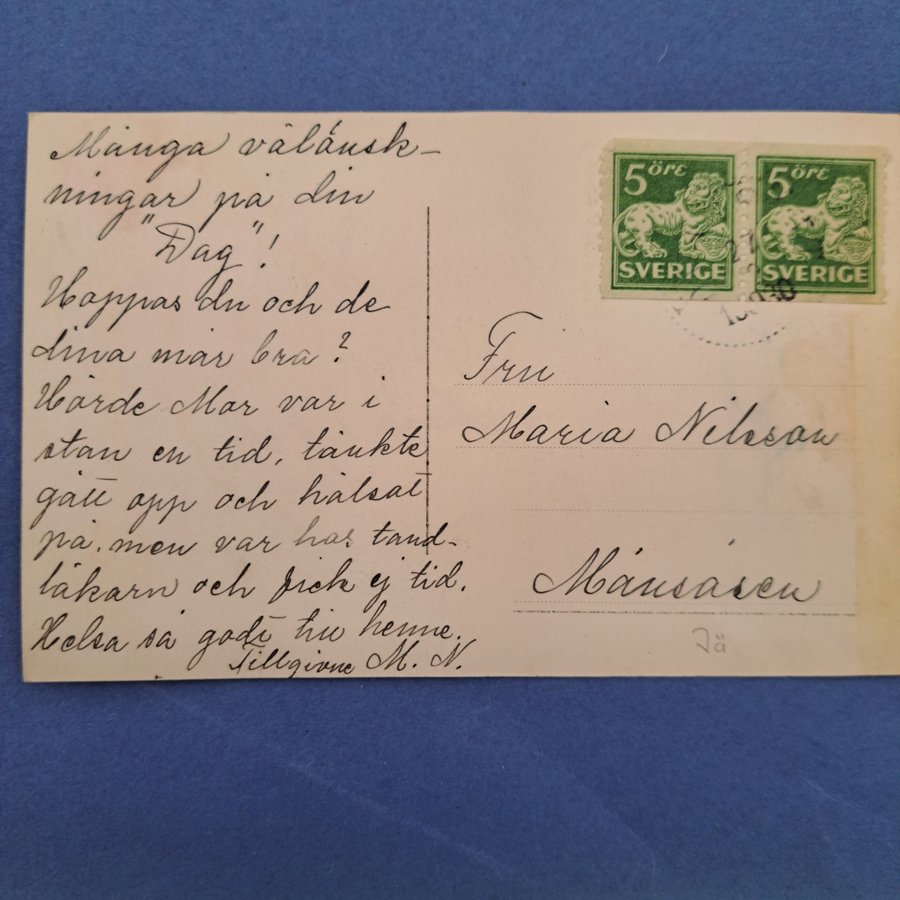 Många välönsk-
ningar på din
"Dag"!
Hoppas du och de
dina mår bra?
Hörde Mor var i
stan en tid, tänkte
gått opp och hälsat
på. men var hos tand-
läkarn och fick ej tid.
Helsa så godt till henne.
Tillgivne M. N.
5 öre
SVERIGE
5 öre
SVERIGE
Fru
Maria Nilsson
Månsåsen
Jä